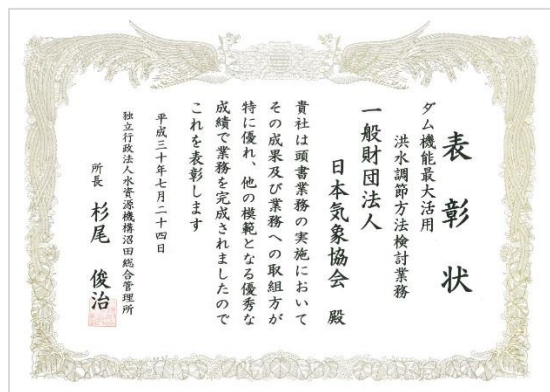 表彰状
ダム機能最大活用
洪水調節方法検討業務
一般財団法人
日本気象協会 殿
貴社は頭書業務の実施において
その成果及び業務への取組方が
特に優れ、他の模範となる優秀な
成績で業務を完成されましたので
これを表彰します
平成三十年七月二十四日
独立行政法人水資源機構沼田総合管理所
所長 杉尾 俊治